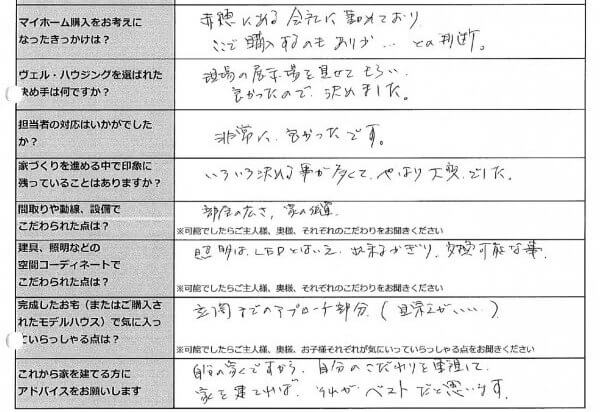 マイホーム購入をお考えに
なったきっかけは？
赤穂にある会社に勤めており
ここで購入するのもありか…との判断。
ヴェル・ハウジングを選ばれた
決め手は何ですか？
現場の展示場を見せてもらい
良かったので決めました。
担当者の対応はいかがでした
か？
非常に良かったです。
家づくりを進める中で印象に
残っていることはありますか？
いろいろ決める事が多くて、やはり大変でした。
間取りや動線、設備で
こだわられた点は？
部屋の広さ、家の
※可能でしたらご主人様、奥様、それぞれのこだわりをお聞きください
建具、照明などの
空間コーディネートで
こだわられた点は？
照明は、LEDとはいえ、出来るかぎり、交換可能な事。
※可能でしたらご主人様、奥様、それぞれのこだわりをお聞きください
完成したお宅（またはご購入さ
れたモデルハウス）で気に入っ
ていらっしゃる点は？
玄関までのアプローチ部分。（見栄えがいい。）
※可能でしたらご主人様、奥様、お子様それぞれが気にいっていらっしゃる点をお聞きください
これから家を建てる方に
アドバイスをお願いします
自分の家ですから、自分のこだわりを重視して、
家を建てれば、それがベストだと思います。